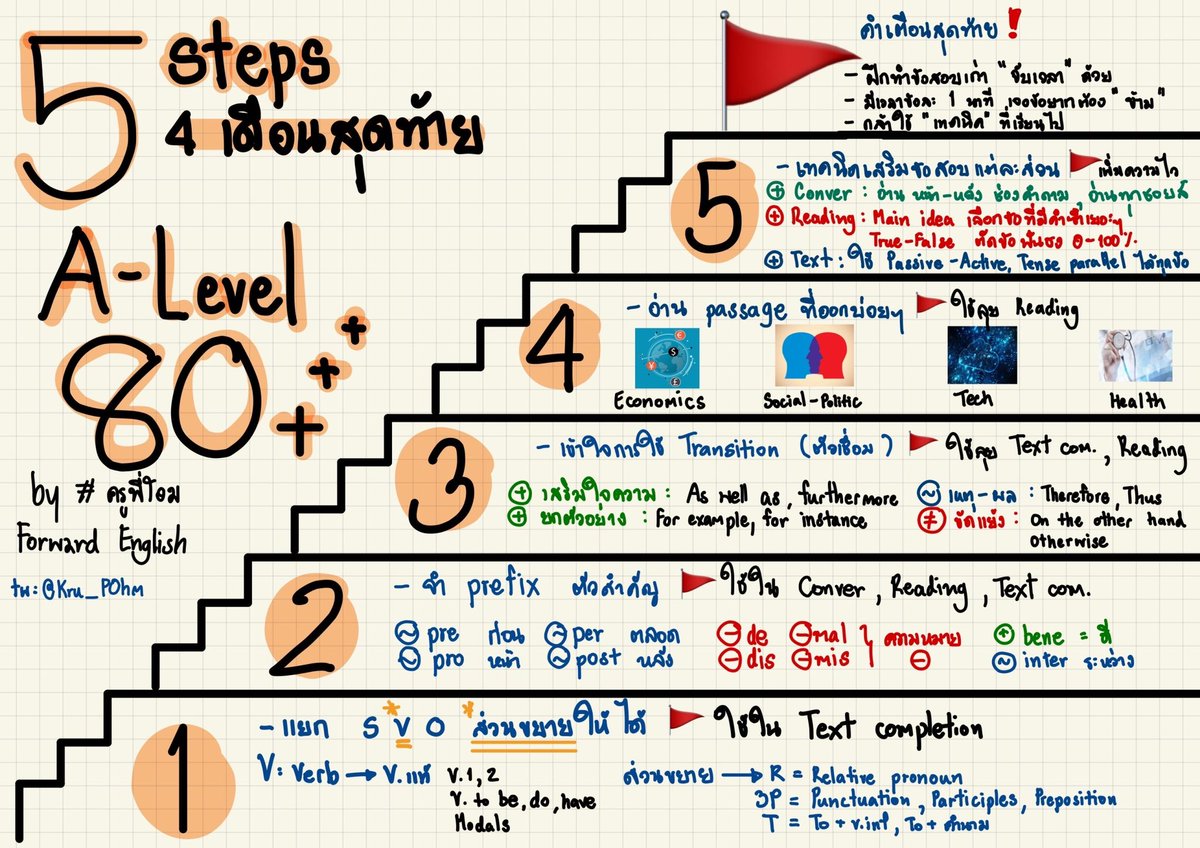 5 steps
4 เดือนสุดท้าย
A-Level
80+++
by # ครูพี่โอม
Forward English
tw: @Kru_POhm
คำเตือนสุดท้าย !
- ฝึกทำข้อสอบเก่า "จับเวลา" ด้วย
- มีเวลาข้อละ 1 นาที เจอข้อยากต้อง "ข้าม"
- กล้าใช้ "เทคนิค" ที่เรียนไป
5
- เทคนิคเสริมข้อสอบแต่ละส่วน เพิ่มความไว
+ Conver : อ่าน หน้า-หลัง ช่องคำถาม, อ่านทุกชอยส์
+ Reading : Main idea เลือกข้อที่มีคำซ้ำเยอะๆ
True-False ตัดข้อฟันธง 0-100%
+ Text : ใช้ Passive-Active, Tense parallel ได้ทุกข้อ
4
- อ่าน passage ที่ออกบ่อยๆ ใช้ลุย Reading
Economics Social-Politic Tech Health
3
- เข้าใจการใช้ Transition (ตัวเชื่อม) ใช้ลุย Text com., Reading
+ เสริมใจความ : As well as, furthermore
+ ยกตัวอย่าง : For example, for instance
~ เหตุ-ผล : Therefore, Thus
≠ ขัดแย้ง : On the other hand
otherwise
2
- จำ prefix ตัวสำคัญ ใช้ใน Conver, Reading, Text com.
~ pre ก่อน ~ per ตลอด - de - mal } ความหมาย + bene = ดี
~ pro หน้า ~ post หลัง - dis - mis - ~ inter ระหว่าง
1
- แยก S V* O *ส่วนขยายให้ได้ ใช้ใน Text completion
V : Verb → V.แท้ V.1, 2
V. to be, do, have
Modals
ส่วนขยาย → R = Relative pronoun
3P = Punctuation, Participles, Preposition
T = To + v.inf, To + คำนาม